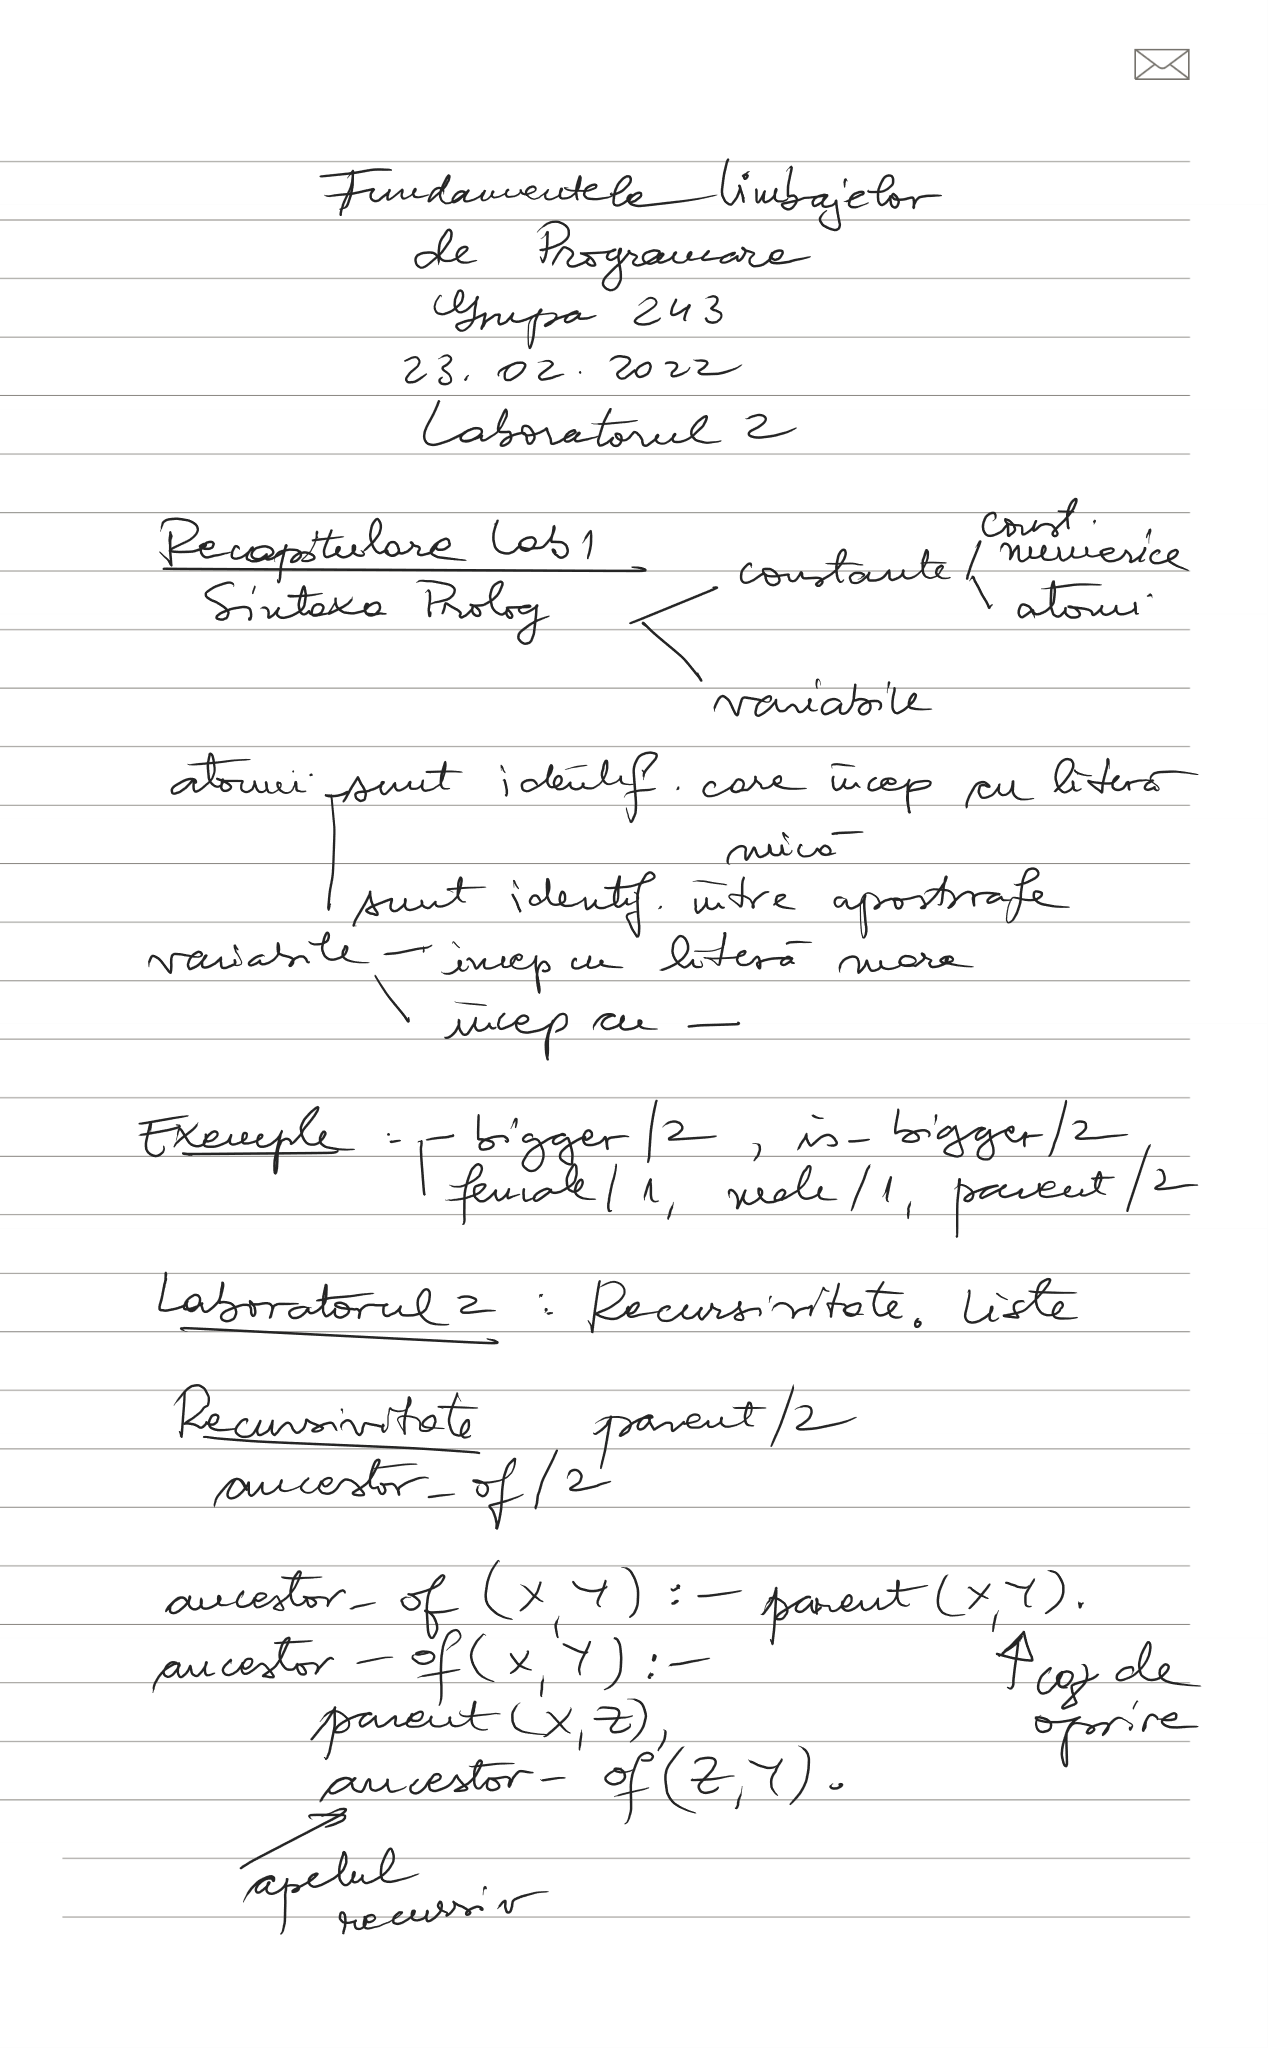 Fundamentele limbajelor
de Programare
Grupa 243
23. 02. 2022
Laboratorul 2
Recapitulare Lab 1
const.
numerice
constante
Sintaxa Prolog
atomi
variabile
atomi sunt identif. care încep cu literă
mică
sunt identif. între apostrafe
variabile — încep cu literă mare
încep cu _
Exemple : - bigger/2, is_bigger/2
female/1, male/1, parent/2
Laboratorul 2 : Recursivitate. Liste
Recursivitate parent/2
ancestor_of/2
ancestor_of(X,Y) :- parent(X,Y).
ancestor_of(X,Y) :-
caz de
parent(X,Z),
oprire
ancestor_of(Z,Y).
apelul
recursiv